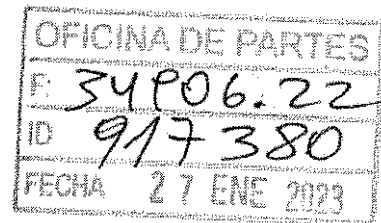 OFICINA DE PARTES
F: 34906.22
ID 917380
FECHA 27 ENE 2023